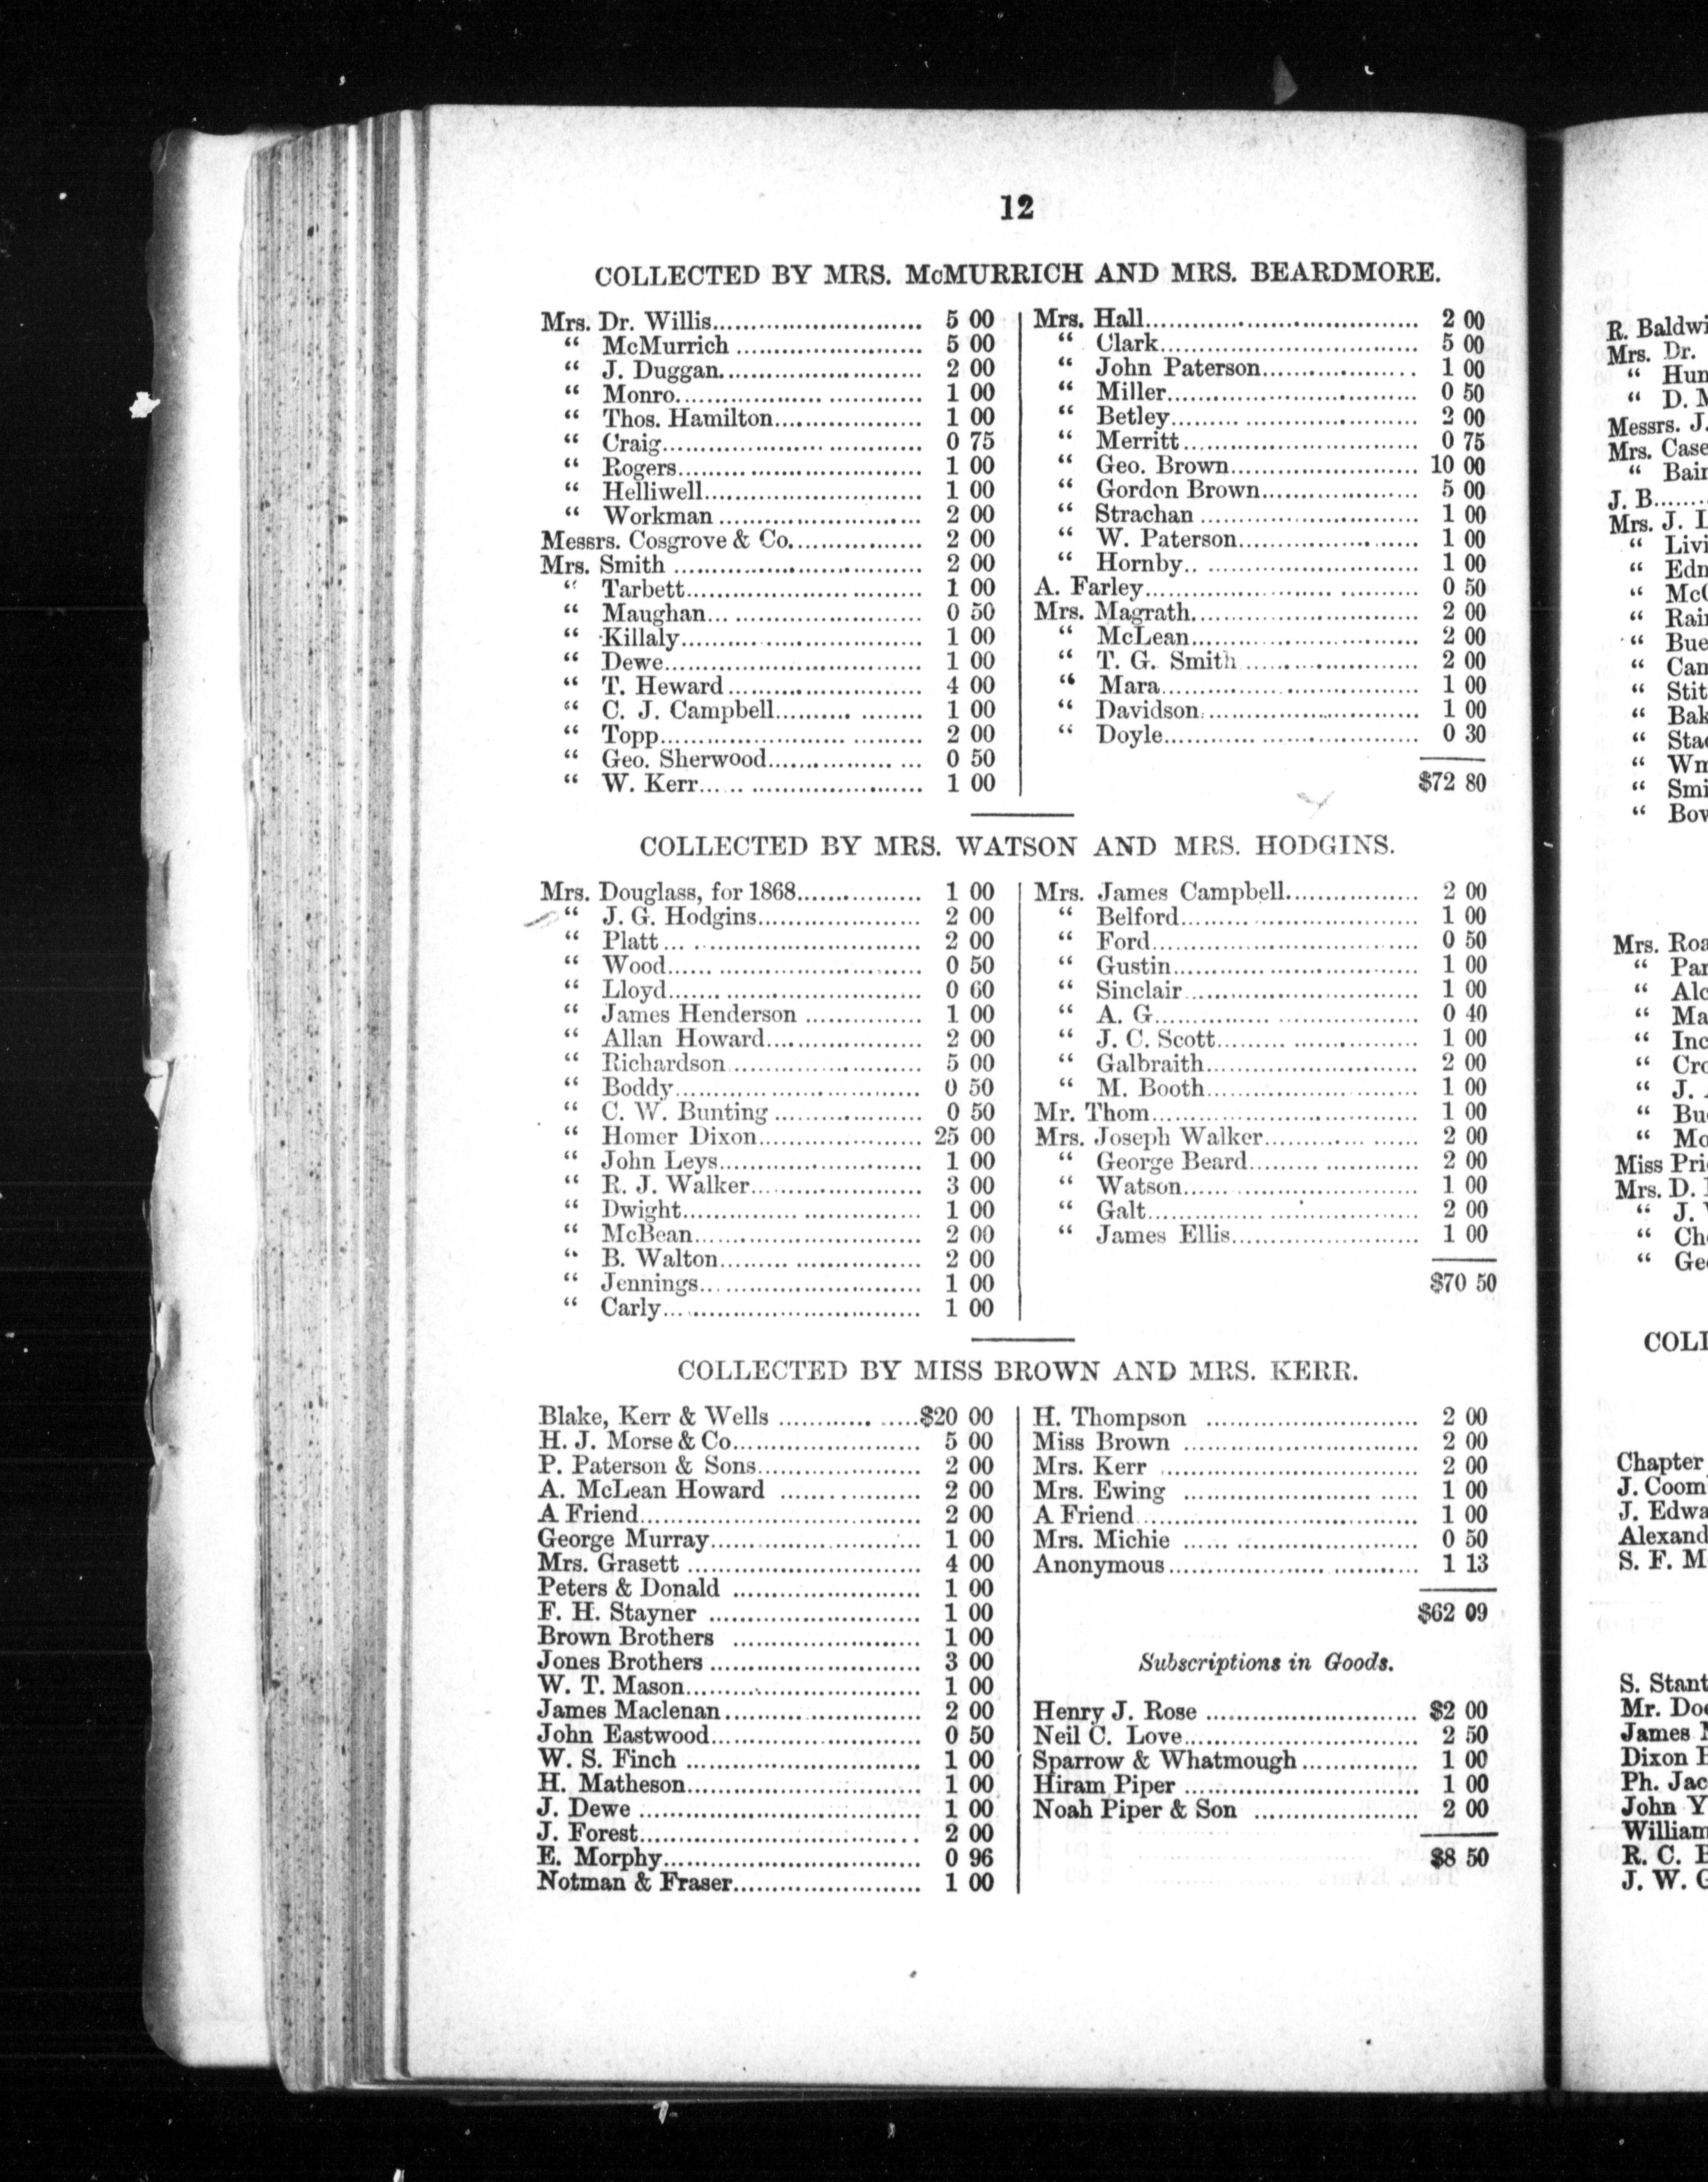 12
COLLECTED BY MRS. McMURRICH AND MRS. BEARDMORE.
Mrs. Dr. Willis............................ 5 00
“ McMurrich ........................ 5 00
“ J. Duggan.......................... 2 00
“ Monro................................ 1 00
“ Thos. Hamilton.................... 1 00
“ Craig.................................. 0 75
“ Rogers................................ 1 00
“ Helliwell............................. 1 00
“ Workman ........................... 2 00
Messrs. Cosgrove & Co.................. 2 00
Mrs. Smith ................................. 2 00
“ Tarbett............................... 1 00
“ Maughan............................. 0 50
“ Killaly................................ 1 00
“ Dewe.................................. 1 00
“ T. Heward.......................... 4 00
“ C. J. Campbell.................... 1 00
“ Topp.................................. 2 00
“ Geo. Sherwood.................... 0 50
“ W. Kerr.............................. 1 00
Mrs. Hall.................................... 2 00
“ Clark.................................. 5 00
“ John Paterson..................... 1 00
“ Miller................................. 0 50
“ Betley................................ 2 00
“ Merritt............................... 0 75
“ Geo. Brown......................... 10 00
“ Gordon Brown..................... 5 00
“ Strachan ............................ 1 00
“ W. Paterson........................ 1 00
“ Hornby............................... 1 00
A. Farley.................................... 0 50
Mrs. Magrath.............................. 2 00
“ McLean.............................. 2 00
“ T. G. Smith ....................... 2 00
“ Mara.................................. 1 00
“ Davidson............................ 1 00
“ Doyle................................. 0 30
$72 80
COLLECTED BY MRS. WATSON AND MRS. HODGINS.
Mrs. Douglass, for 1868................ 1 00
“ J. G. Hodgins...................... 2 00
“ Platt .................................. 2 00
“ Wood................................. 0 50
“ Lloyd................................. 0 60
“ James Henderson ................ 1 00
“ Allan Howard..................... 2 00
“ Richardson......................... 5 00
“ Boddy................................ 0 50
“ C. W. Bunting .................... 0 50
“ Homer Dixon...................... 25 00
“ John Leys........................... 1 00
“ R. J. Walker....................... 3 00
“ Dwight............................... 1 00
“ McBean.............................. 2 00
“ B. Walton........................... 2 00
“ Jennings............................. 1 00
“ Carly.................................. 1 00
Mrs. James Campbell.................. 2 00
“ Belford............................... 1 00
“ Ford................................... 0 50
“ Gustin................................ 1 00
“ Sinclair.............................. 1 00
“ A. G.................................. 0 40
“ J. C. Scott.......................... 1 00
“ Galbraith............................ 2 00
“ M. Booth............................ 1 00
Mr. Thom................................... 1 00
Mrs. Joseph Walker..................... 2 00
“ George Beard...................... 2 00
“ Watson............................... 1 00
“ Galt................................... 2 00
“ James Ellis......................... 1 00
$70 50
COLLECTED BY MISS BROWN AND MRS. KERR.
Blake, Kerr & Wells .................$20 00
H. J. Morse & Co......................... 5 00
P. Paterson & Sons...................... 2 00
A. McLean Howard ................... 2 00
A Friend..................................... 2 00
George Murray............................ 1 00
Mrs. Grasett ............................... 4 00
Peters & Donald ......................... 1 00
F. H. Stayner ............................ 1 00
Brown Brothers ......................... 1 00
Jones Brothers ............................ 3 00
W. T. Mason............................... 1 00
James Maclenan.......................... 2 00
John Eastwood............................ 0 50
W. S. Finch ............................... 1 00
H. Matheson............................... 1 00
J. Dewe ..................................... 1 00
J. Forest..................................... 2 00
E. Morphy.................................. 0 96
Notman & Fraser......................... 1 00
H. Thompson ............................ 2 00
Miss Brown ............................... 2 00
Mrs. Kerr .................................. 2 00
Mrs. Ewing ............................... 1 00
A Friend..................................... 1 00
Mrs. Michie ............................... 0 50
Anonymous................................. 1 13
$62 09
Subscriptions in Goods.
Henry J. Rose ............................ $2 00
Neil C. Love............................... 2 50
Sparrow & Whatmough................ 1 00
Hiram Piper ............................... 1 00
Noah Piper & Son ...................... 2 00
$8 50
R.
Mrs. Dr.
“
“ D.
Messrs. J.
Mrs.
“
J. B.......
Mrs. J.
“
“
“
“
“
“
“
“
“
“
“
“
Mrs.
“
“
“
“
“
“ J.
“
“
Miss
Mrs. D.
“ J.
“
“
Chapter
J.
J.
S. F.
S.
Mr.
James
Dixon
Ph.
John
R. C.
J. W.